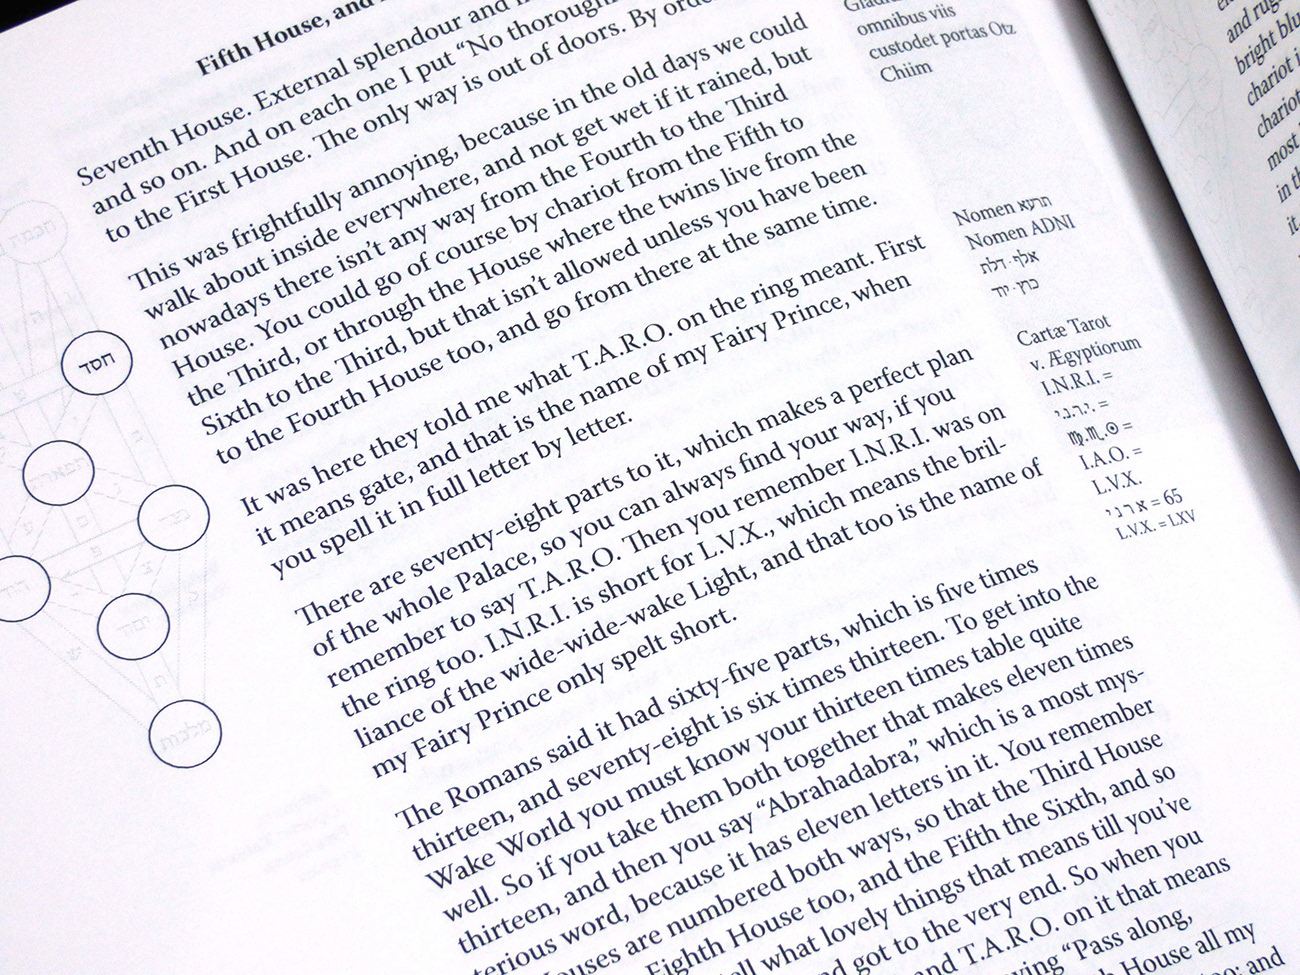 Fifth House, and
Seventh House. External splendour and
and so on. And on each one I put “No thorough
to the First House. The only way is out of doors. By
This was frightfully annoying, because in the old days we could
walk about inside everywhere, and not get wet if it rained, but
nowadays there isn’t any way from the Fourth to the Third
House. You could go of course by chariot from the Fifth to
the Third, or through the House where the twins live from the
Sixth to the Third, but that isn’t allowed unless you have been
to the Fourth House too, and go from there at the same time.
It was here they told me what T.A.R.O. on the ring meant. First
it means gate, and that is the name of my Fairy Prince, when
you spell it in full letter by letter.
There are seventy-eight parts to it, which makes a perfect plan
of the whole Palace, so you can always find your way, if you
remember to say T.A.R.O. Then you remember I.N.R.I. was on
the ring too. I.N.R.I. is short for L.V.X., which means the bril-
liance of the wide-wide-wake Light, and that too is the name of
my Fairy Prince only spelt short.
The Romans said it had sixty-five parts, which is five times
thirteen, and seventy-eight is six times thirteen. To get into the
Wake World you must know your thirteen times table quite
well. So if you take them both together that makes eleven times
thirteen, and then you say “Abrahadabra,” which is a most mys-
terious word, because it has eleven letters in it. You remember
ouses are numbered both ways, so that the Third House
Eighth House too, and the Fifth the Sixth, and so
ll what lovely things that means till you’ve
got to the very end. So when you
nd T.A.R.O. on it that means
ying “Pass along,
House all my
and
omnibus viis
custodet portas Otz
Chiim
Nomen תרעא
Nomen ADNI
אלף·דלת
Cartæ Tarot
v. Ægyptiorum
I.N.R.I. =
י.נ.ר.י. =
♍.♏.☉ =
I.A.O. =
L.V.X.
אדני = 65
L.V.X. = LXV
חסד
and rug
bright blu
chariot i
chariot
most
in th
it.